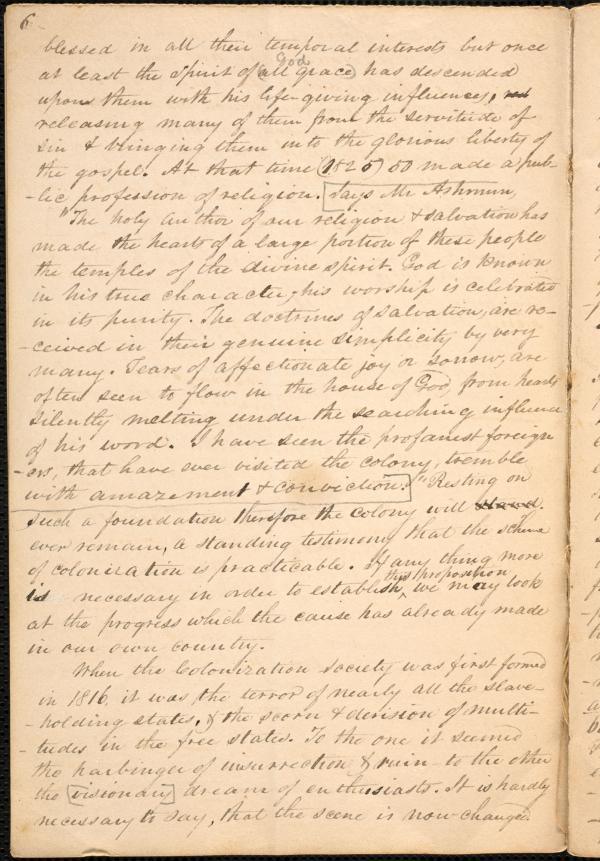 6
blessed in all their temporal interests but once
God
at least the Spirit of (all grace) has descended
upon them with his life-giving influences, red
releasing many of them from the servitude of
sin & bringing them into the glorious liberty of
the gospel. At that time (1825) 50 made a pub-
-lic profession of religion. Says Mr Ashmun,
"The holy author of our religion & salvation has
made the hearts of a large portion of these people
the temples of the divine spirit. God is known
in his true character, his worship is celebrated
in its purity. The doctrines of salvation, are re-
-ceived in their genuine simplicity by very
many. Tears of affectionate joy or sorrow, are
often seen to flow in the house of God, from hearts
silently melting under the searching influence
of his word. I have seen the profanest foreign
-ers, that have ever visited the colony, tremble
with amazement & conviction." Resting on
such a foundation therefore the colony will stand.
ever remain, a standing testimony that the scheme
of colonization is practicable. If any thing more
this proposition
is necessary in order to establish, we may look
at the progress which the cause has already made
in our own country.
When the Colonization Society was first formed
in 1816, it was the terror of nearly all the slave-
-holding states, & the scorn & derision of multi-
-tudes in the free states. To the one it seemed
the harbinger of insurrection & ruin - to the other
the visionary dream of enthusiasts. It is hardly
necessary to say, that the scene is now changed